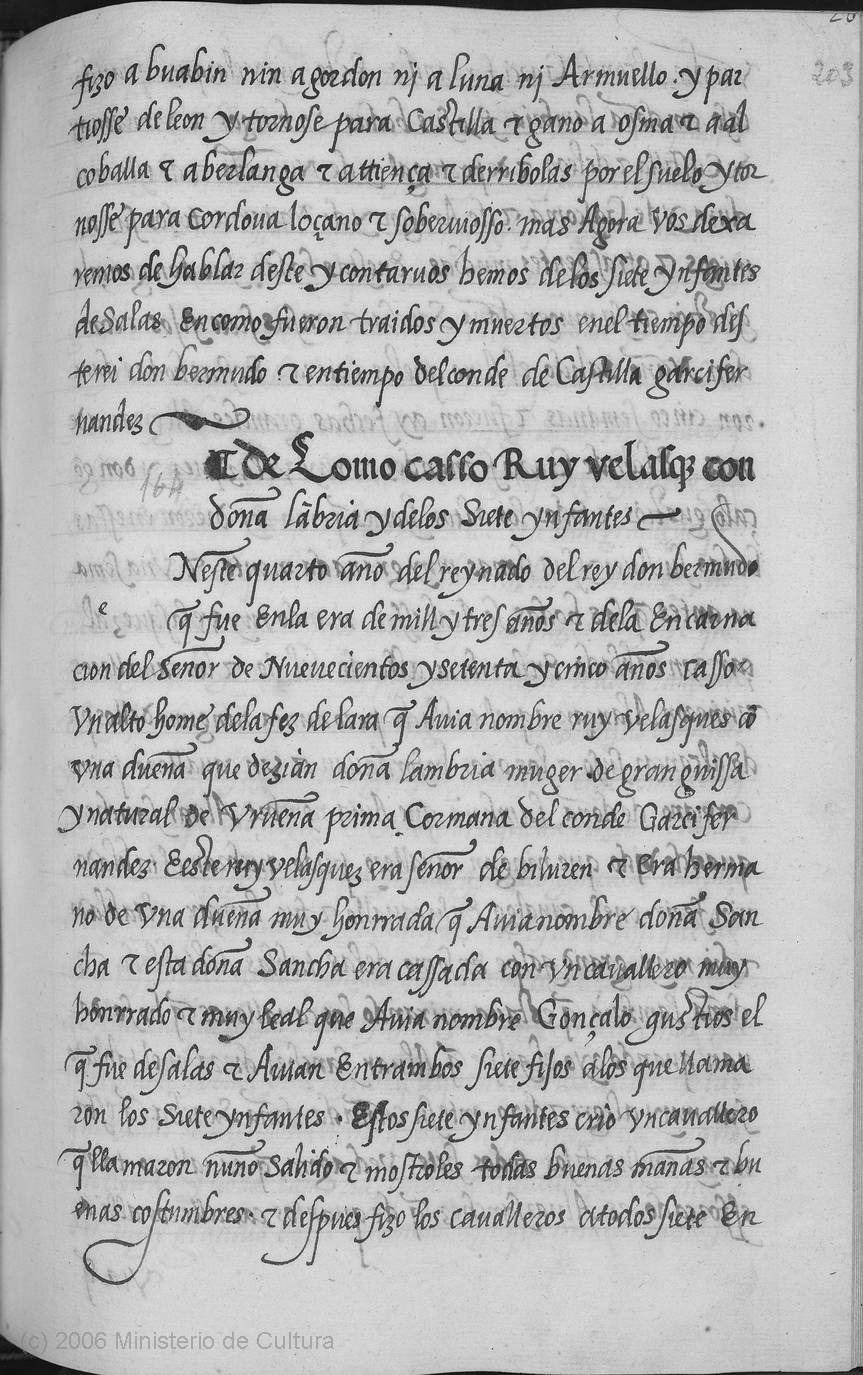 203
fizo a buabin nin agordon nj a luna nj Armuello · y par
tiosse de leon y tornose para Castilla τ gano a osma τ a al
coballa τ a berlanga τ attiença τ derribolas por el suelo y tor
nosse para Cordoua loçano τ soberuiosso · mas Agora vos dexa
remos de hablar deste y contaruos hemos de los siete ynfantes
de Salas En como fueron traidos y muertos enel tiempo des
te rei don bermudo τ en tiempo del conde de Castilla garcifer
nandez
164
¶ de Como casso Ruy velasqz con
doña lãbria y delos Siete ynfantes
Neste quarto año del reynado del rey don bermudo
e
q̃ fue Enla era de mill y tres años τ dela Encarna
cion del Señor de Nuevecientos y setenta y cinco años casso
Vn alto home dela fez de lara q̃ Auia nombre ruy velasques cõ
vna dueña que dezian doña lambria muger de gran guissa
y natural de Vrueña prima Cormana del conde Garcifer
nandez · Eeste ruy velasquez era señor de biluren τ Era herma
no de vna dueña muy honrrada q̃ Auia nombre doña San
cha τ esta doña Sancha era cassada con vn cauallero muy
honrrado τ muy leal que Auia nombre Gonçalo gustios el
q̃ fue de salas τ Auian Entrambos siete fijos alos que llama
ron los Siete ynfantes · Estos siete ynfantes crio vn cauallero
q̃ llamaron nuño Salido τ mostroles todas buenas mañas τ bu
enas costumbres · τ despues fizo los caualleros a todos siete En
(c) 2006 Ministerio de Cultura